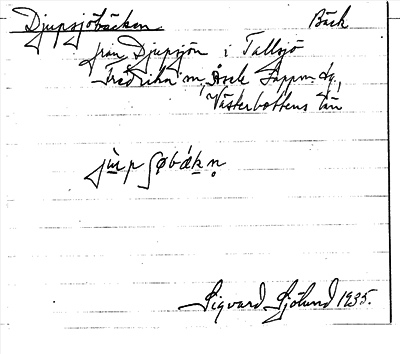 Djupsjöbäcken Bäck
från Djupsjön i Tallsjö
Fredrika sn, Åsele Lappm. ,
Västerbottens län
Sigvard Sjölund 1935.